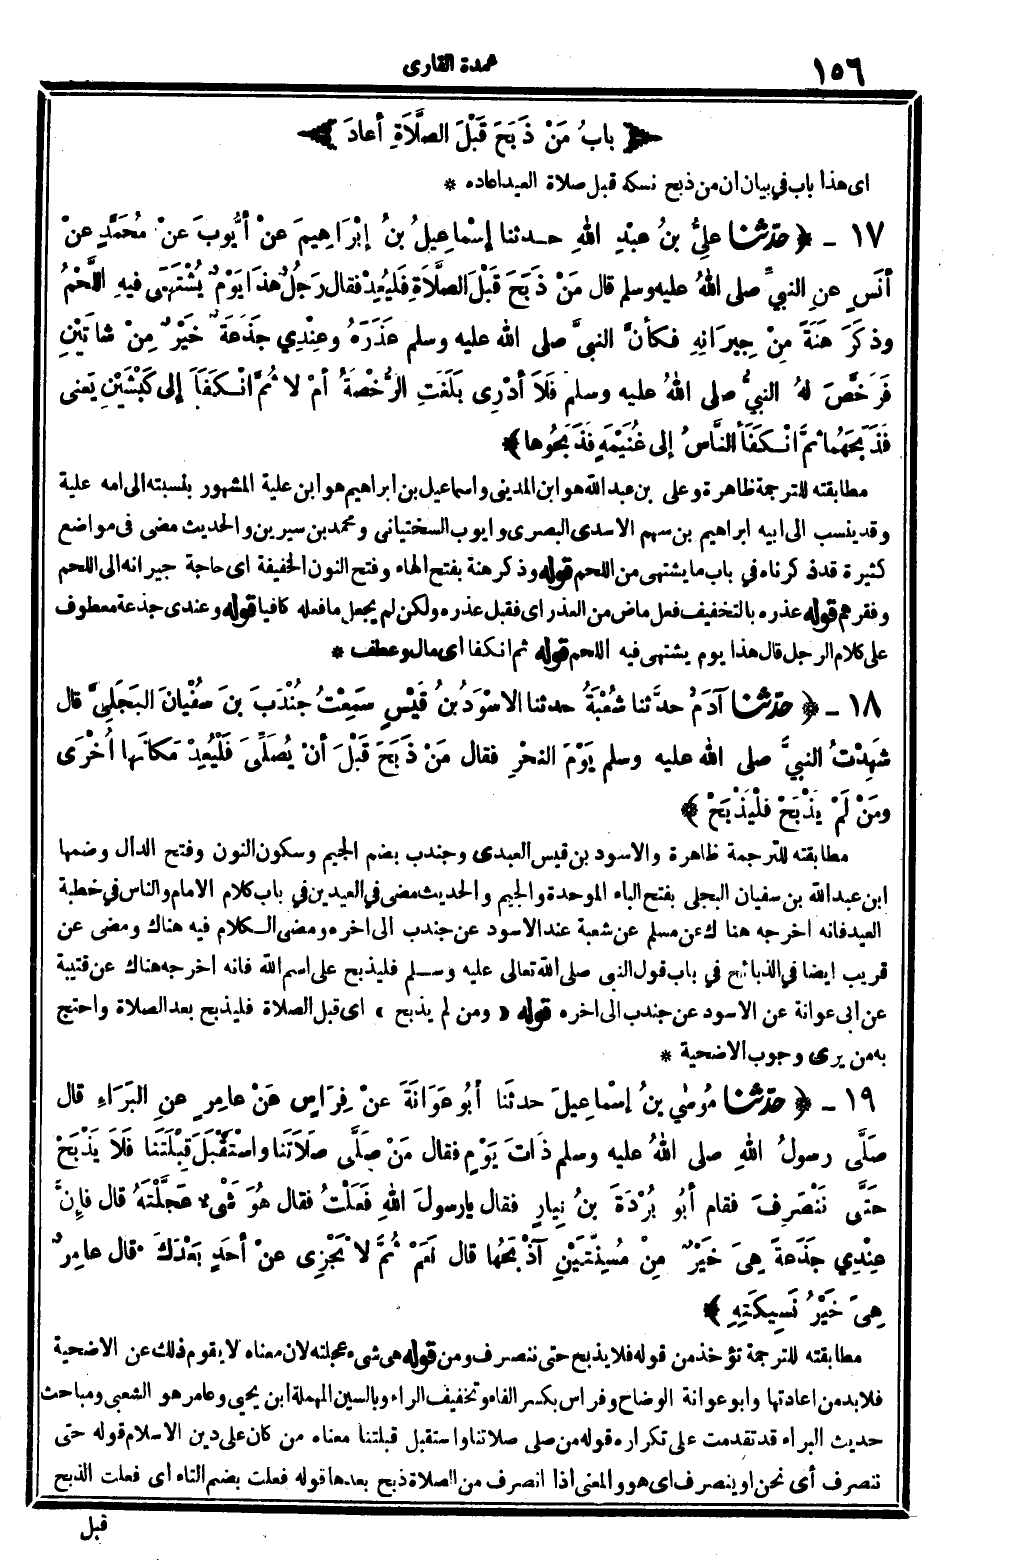 ١٥٦
عمدة القارى
﴿ بابُ مَنْ ذَبَحَ قَبْلَ الصَّلَاةِ أعادَ ﴾
اى هذا باب في بيان ان من ذبح نسكه قبل صلاة العيد اعاده *
١٧ - ﴿ حدَّثنا عَلِيُّ بنُ عبْدِ اللهِ حدثنا إسْماعِيلُ بنُ إبْرَاهِيمَ عنْ أيُّوبَ عنْ مُحَمَّدٍ عنْ
أنَسٍ عنِ النبيِّ صلى اللهُ عليه وسلم قال مَنْ ذَبَحَ قَبْلَ الصَّلَاةِ فَلْيُعِدْ فقال رَجُلٌ هذا يَوْمٌ يُشْتَهَى فيهِ اللَّحْمُ
وذكَرَ هَنَةً مِنْ جِيرَانِهِ فكأنَّ النبيَّ صلى الله عليه وسلم عَذَرَهُ وعِنْدِي جَذَعَةٌ خَيْرٌ مِنْ شاتَيْنِ
فَرَخَّصَ لهُ النبيُّ صلى اللهُ عليه وسلم فَلاَ أدْرِى بَلَغَتِ الرُّخْصَةُ أمْ لا ثُمَّ انْكَفَأَ إلى كَبْشَيْنِ يَعنى
فَذَبَحَهُما ثمَّ انْكَفَأ النَّاسُ إلى غُنَيْمَةٍ فَذَبَحُوها ﴾
مطابقته للترجمة ظاهرة وعلى بن عبد الله هو ابن المدينى واسماعيل بن ابراهيم هو ابن علية المشهور بنسبته الى امه علية
وقد ينسب الى ابيه ابراهيم بن سهم الاسدى البصرى وايوب السختيانى ومحمد بن سيرين والحديث مضى فى مواضع
كثيرة قد ذكرناه في باب ما يشتهى من اللحم قوله وذكر هنة بفتح الهاء وفتح النون الخفيفة اى حاجة جيرانه الى اللحم
وفقرهم قوله عذره بالتخفيف فعل ماض من العذر اى فقبل عذره ولكن لم يجعل ما فعله كافيا قوله وعندى جذعة معطوف
على كلام الرجل قال هذا يوم يشتهى فيه اللحم قوله ثم انكفا اى مال وعطف *
١٨ - ﴿ حدَّثنا آدَمُ حدَّثنا شُعْبَةُ حدثنا الاسْوَدُ بنُ قَيْسٍ سَمِعْتُ جُنْدَبَ بنَ سُفْيانَ البَجَلِيَّ قال
شَهِدْتُ النبيَّ صلى الله عليه وسلم يَوْمَ النحْرِ فقال مَنْ ذَبَحَ قَبْلَ أنْ يُصَلِّىَ فَلْيُعِدْ مَكانَها أُخْرَى
ومَنْ لَمْ يَذْبَحْ فلْيَذْبَحْ ﴾
مطابقته للترجمة ظاهرة والاسود بن قيس العبدى وجندب بضم الجيم وسكون النون وفتح الدال وضمها
ابن عبد الله بن سفيان البجلى بفتح الباء الموحدة والجيم والحديث مضى في العيدين في باب كلام الامام والناس في خطبة
العيد فانه اخرجه هناك عن مسلم عن شعبة عند الاسود عن جندب الى اخره ومضى الكلام فيه هناك ومضى عن
قريب ايضا في الذبائح في باب قول النبى صلى الله تعالى عليه وسلم فليذبح على اسم الله فانه اخرجه هناك عن قتيبة
عن ابى عوانة عن الاسود عن جندب الى اخره قوله « ومن لم يذبح » اى قبل الصلاة فليذبح بعد الصلاة واحتج
به من يرى وجوب الاضحية *
١٩ - ﴿ حدَّثنا مُوسَى بنُ إسْماعِيلَ حدثنَا أبُو عَوَانَةَ عنْ فِرَاسٍ عَنْ عامِرٍ عنِ البَرَاءِ قال
صَلَّى رسولُ اللهِ صلى اللهُ عليه وسلم ذَاتَ يَوْمٍ فقال مَنْ صَلَّى صَلَاتَنا واسْتَقْبَلَ قِبْلَتَنا فَلاَ يَذْبَحْ
حَتَّى نَنْصَرِفَ فقام أبُو بُرْدَةَ بنُ نِيارٍ فقال يارسولَ اللهِ فَعَلْتُ فقال هُوَ شَىْءٌ عَجَّلْتَهُ قال فإنَّ
عِنْدِي جَذَعَةً هِىَ خَيْرٌ مِنْ مُسِنَّتَيْنِ آذْبَحُها قال نَعَمْ ثُمَّ لاَ تَجْزِى عنْ أحَدٍ بَعْدَكَ قال عامِرٌ
هِىَ خَيْرُ نَسِيكَتِهِ ﴾
مطابقته للترجمة تؤخذ من قوله فلا يذبح حتى ننصرف ومن قوله هى شىء عجلته لان معناه لا يقوم ذلك عن الاضحية
فلابد من اعادتها وابو عوانة الوضاح وفراس بكسر الفاء وتخفيف الراء وبالسين المهملة ابن يحيى وعامر هو الشعبى ومباحث
حديث البراء قد تقدمت على تكراره قوله من صلى صلاتنا واستقبل قبلتنا معناه من كان على دين الاسلام قوله حتى
ننصرف أى نحن او ينصرف اى هو والمعنى اذا انصرف من الصلاة ذبح بعدها قوله فعلت بضم التاء اى فعلت الذبح
قبل